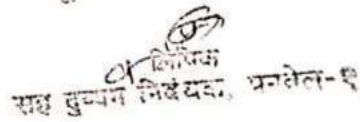 लिपिक
सह दुय्यम निबंधक, पनवेल-१